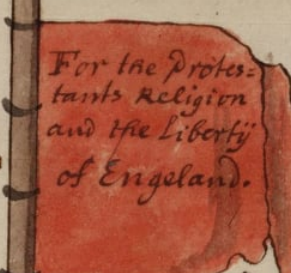 For the Protes=
tants Religion
and the Libertÿ
of Engeland.